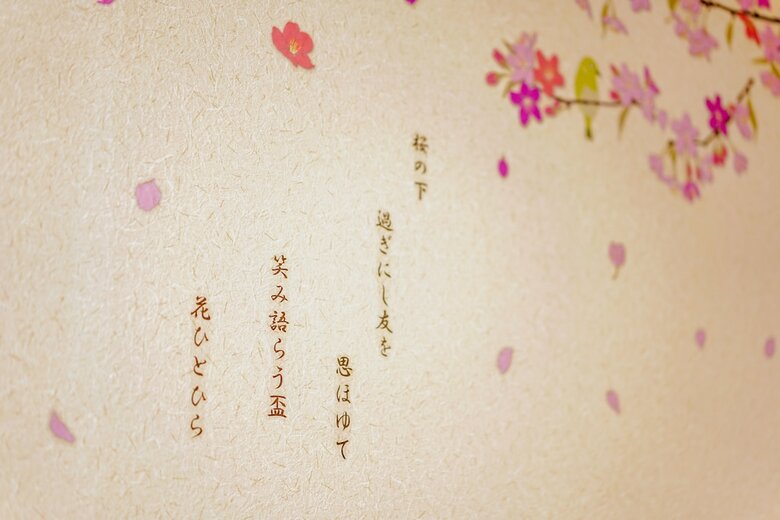 桜の下
過ぎにし友を
思ほゆて
笑み語らう盃
花ひとひら